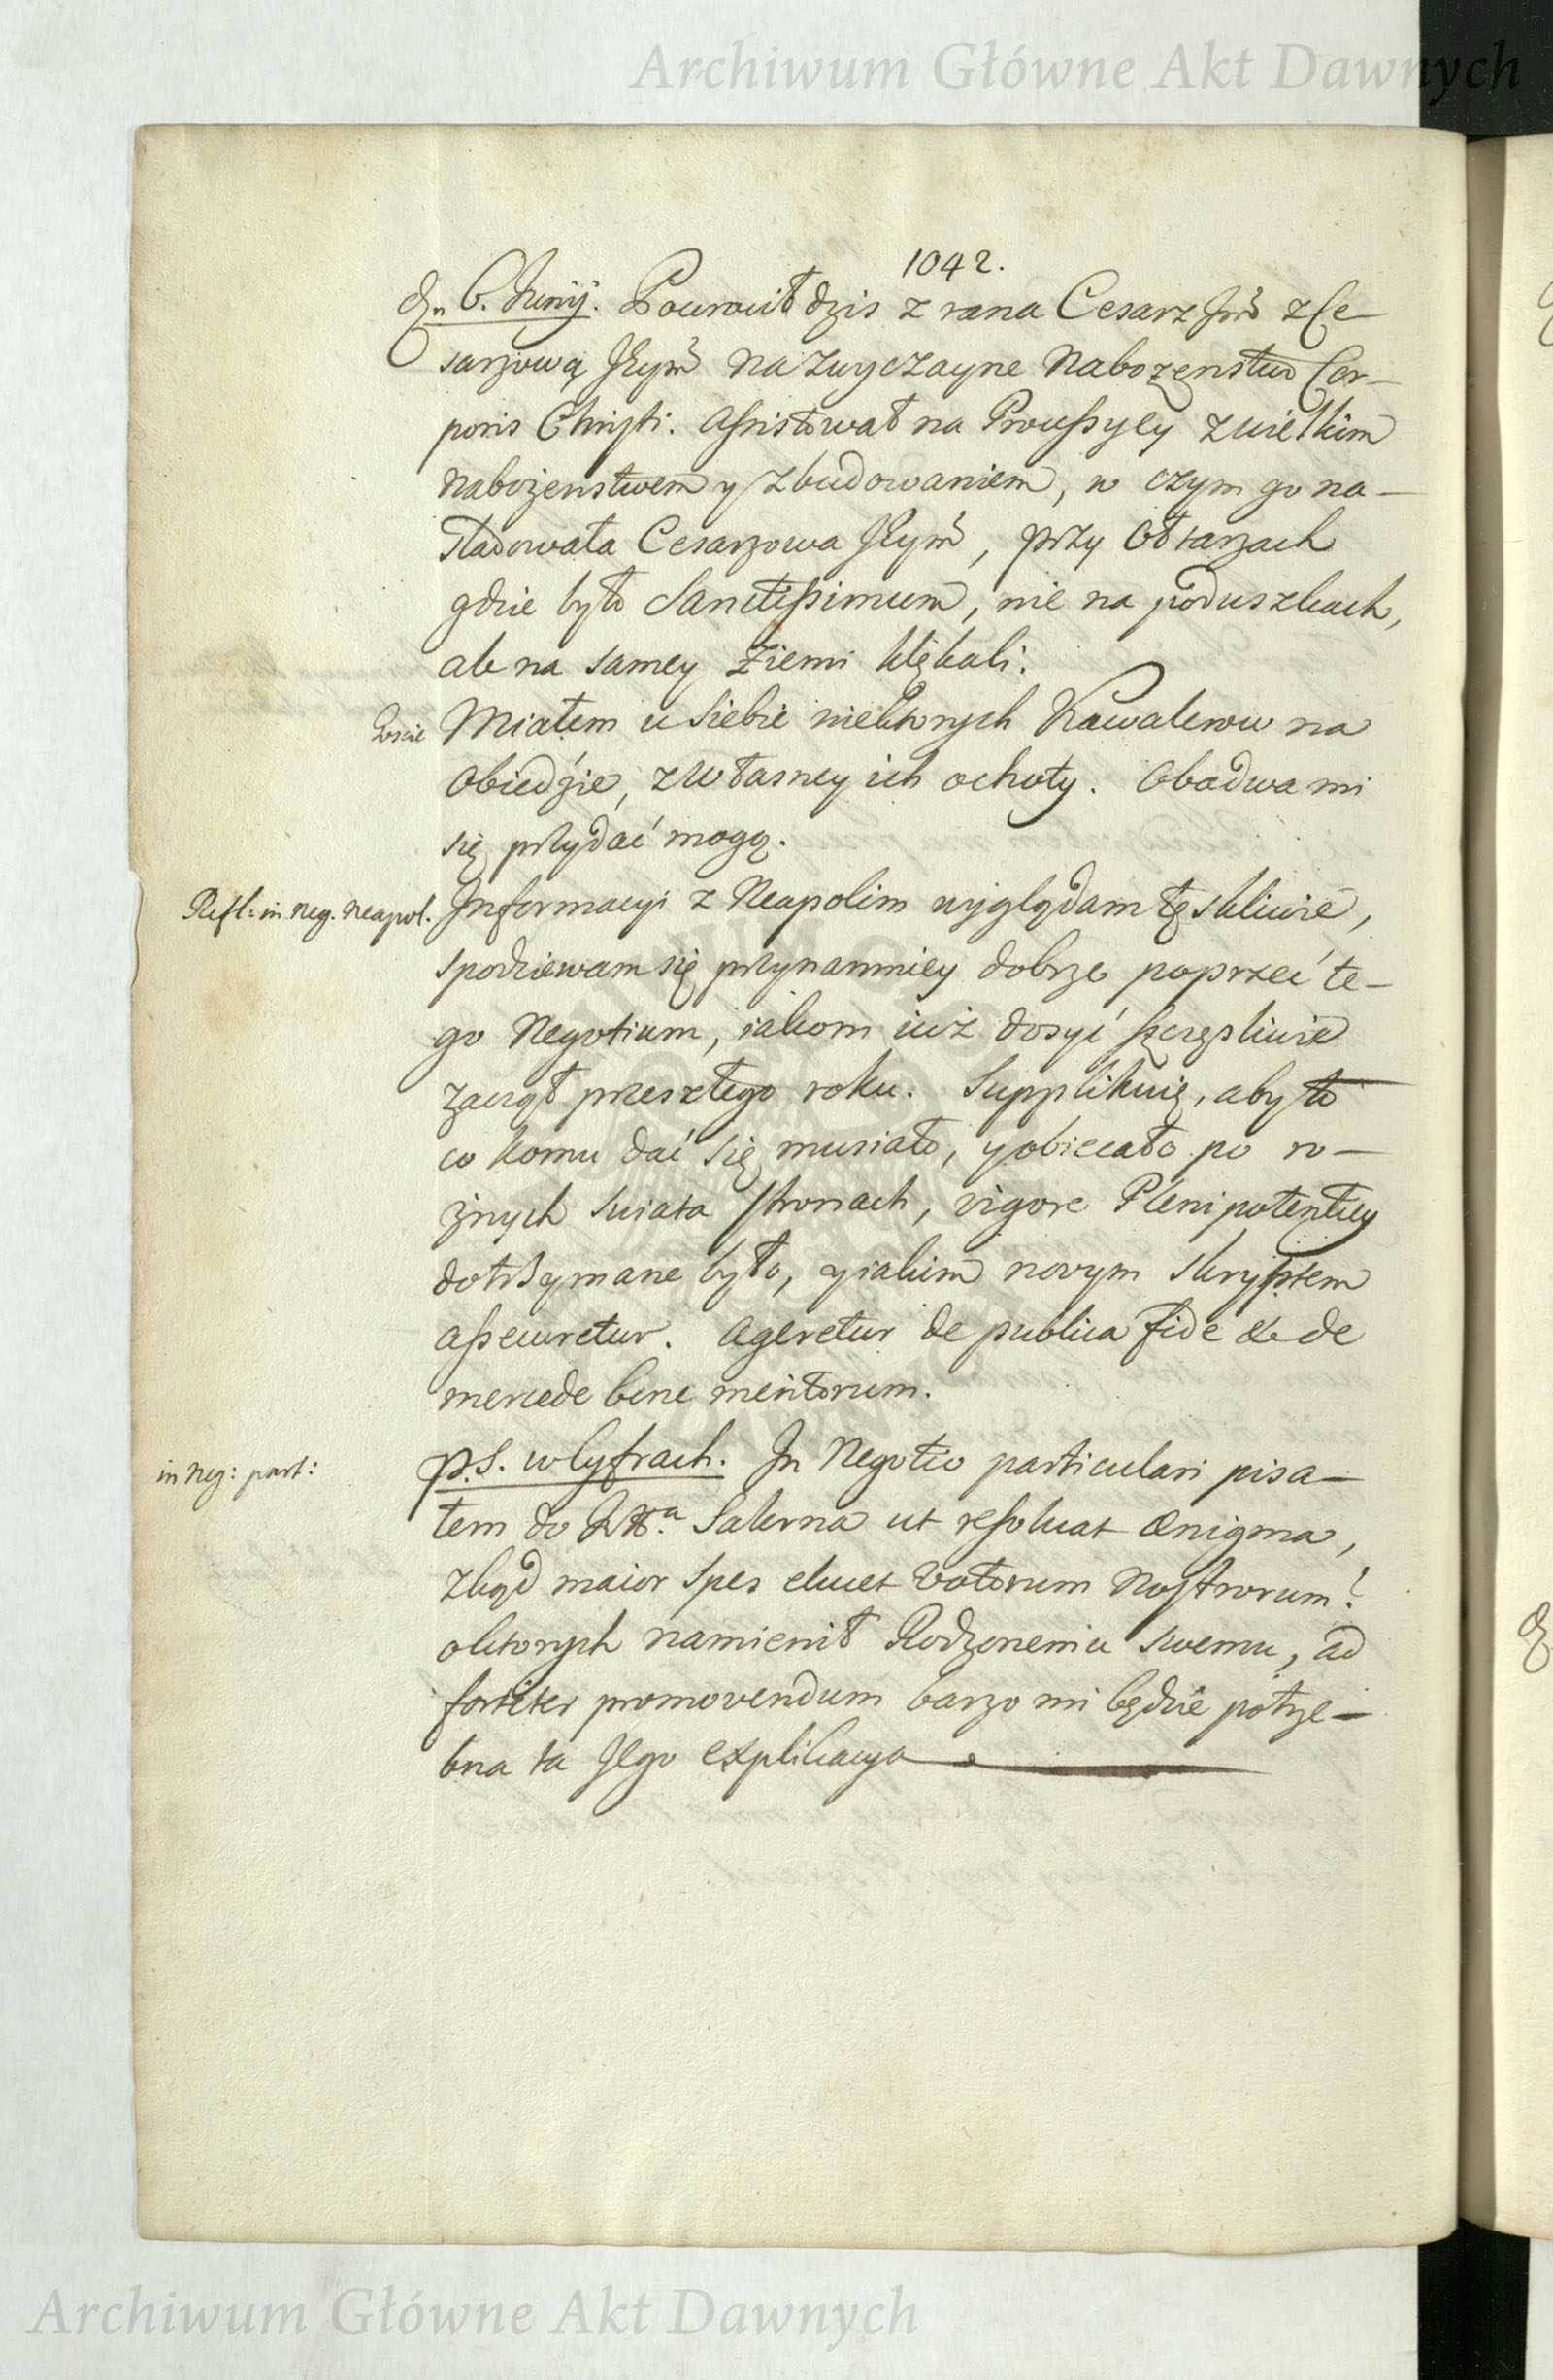 Archiwum Główne Akt Dawnych
1042.
6. Junij. Powrocił dzis z rana Cesarz Jmć z Ce-
sarzową Jeymć na zwyczayne Nabożenstwo Cor-
poris Christi. Assistował na Processyey z wielkim
nabożenstwem y zbudowaniem, w czym go na-
sladowała Cesarzowa Jeymć, przy Ołtarzach
gdzie było Sanctissimum, nie na poduszkach,
ale na samey ziemi klękali.
Goscie Miałem u siebie niektorych Kawalerow na
obiedzie, z własney ich ochoty. Obadwa mi
się przydać mogą.
Refl: in neg. neapol. Informacyi z Neapolim wyglądam tęskliwie,
spodziewam się przynamniey dobrze poprzeć te-
go Negotium, iakom iuż dosyć szczęsliwie
zaczął przeszłego roku. Supplikuię, aby to
co komu dać się musiało, y obiecało po ro-
żnych swiata stronach, vigore Plenipotentiey
dotrzymane było, y iakim novym skryptem
assecuretur. Ageretur de publica fide & de
mercede bene meritorum.
in Neg: part: P.S. w Cyfrach. In Negotio particulari pisa-
łem do Salerna ut resolvat ænigma,
zkąd maior spes elucet votorum nostrorum?
o ktorych namienił Rodzoneniu swemu, ad
fortiter promovendum barzo mi będzie potrze-
bna ta Jego explikacya
Archiwum Główne Akt Dawnych